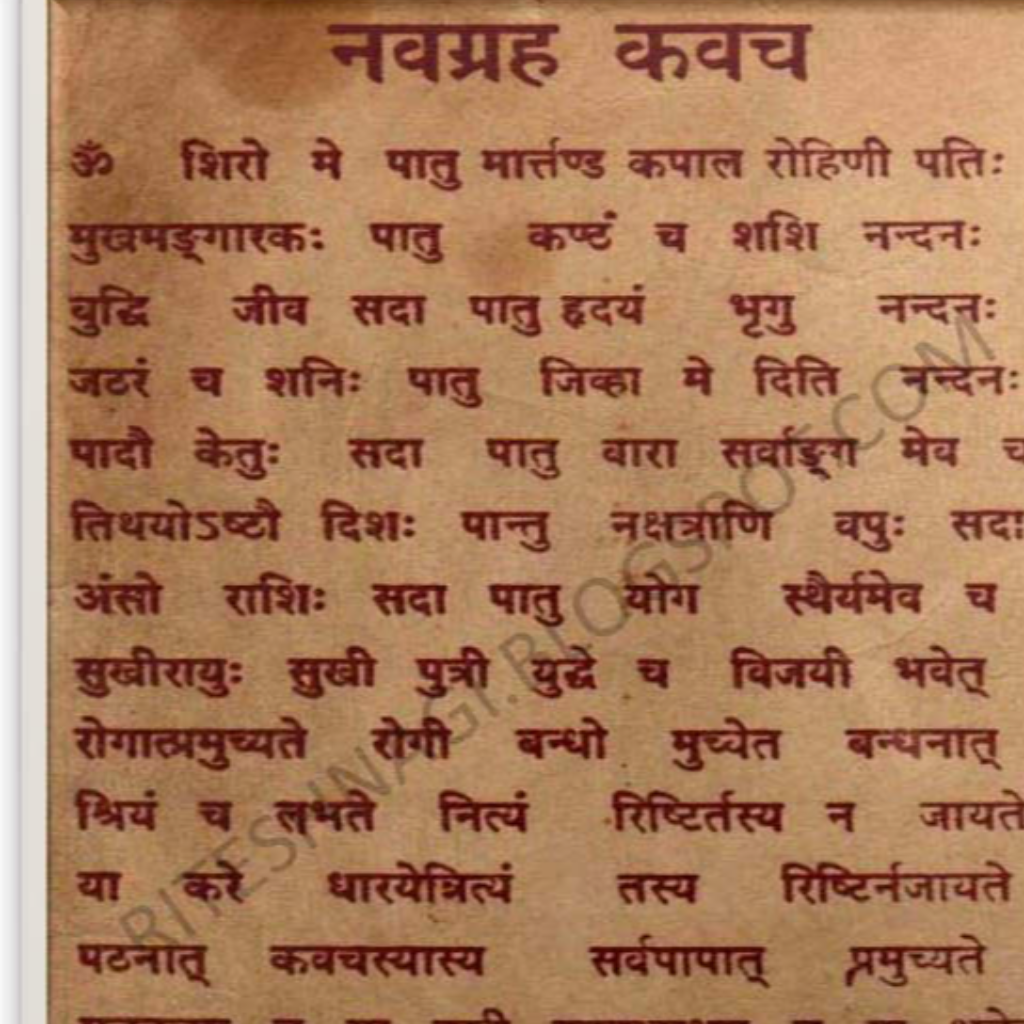 नवग्रह कवच
ॐ शिरो मे पातु मार्त्तण्ड कपाल रोहिणी पतिः
मुखमङ्गारकः पातु कण्टं च शशि नन्दनः
वुद्धि जीव सदा पातु हृदयं भृगु नन्दनः
जटरं च शनिः पातु जिव्हा मे दिति नन्दनः
पादौ केतुः सदा पातु वारा सर्वाङ्ग मेव च
तिथयोऽष्टौ दिशः पान्तु नक्षत्राणि वपुः सदा
अंसो राशिः सदा पातु योग स्थैर्यमेव च
सुखीरायुः सुखी पुत्री युद्धे च विजयी भवेत्
रोगात्प्रमुच्यते रोगी बन्धो मुच्येत बन्धनात्
श्रियं च लभते नित्यं रिष्टिर्तस्य न जायते
या करे धारयेन्नित्यं तस्य रिष्टिर्नजायते
पठनात् कवचस्यास्य सर्वपापात् प्रमुच्यते
RITESHNAGI.BLOGSPOT.COM